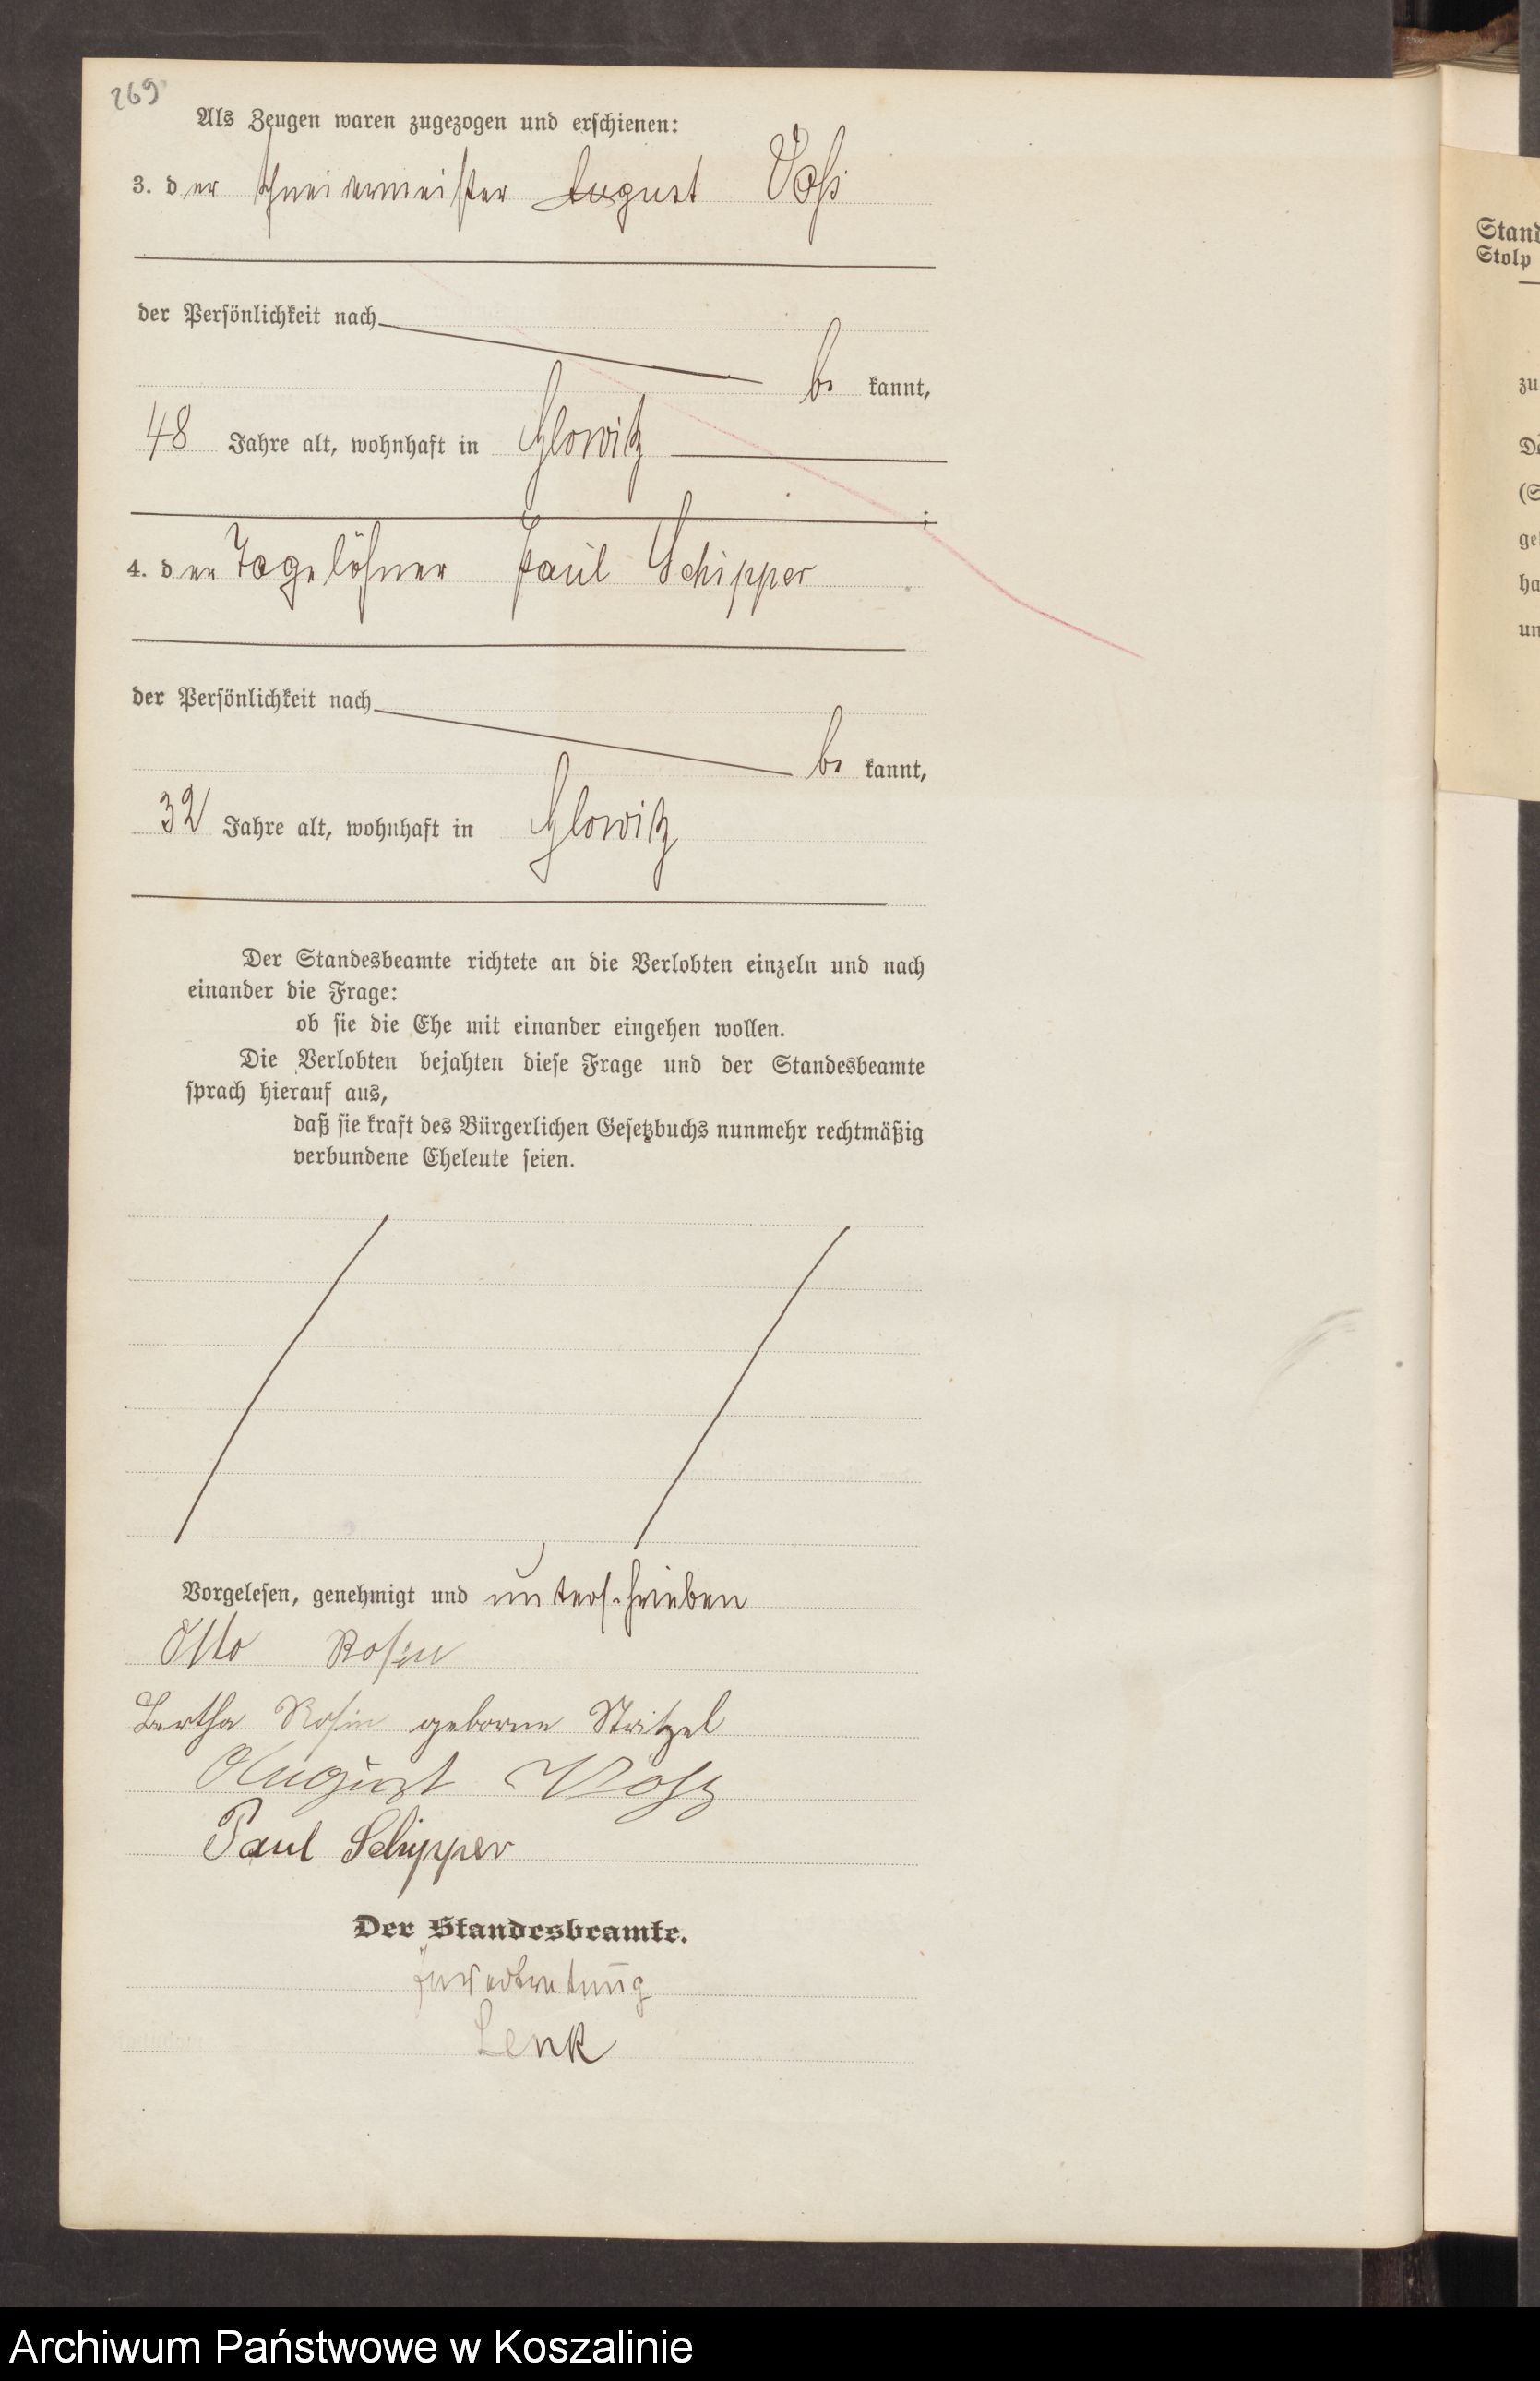 269
Als Zeugen waren zugezogen und erschienen:
3. der Schneidermeister August Voß
der Persönlichkeit nach
be kannt,
48 Jahre alt, wohnhaft in Glowitz
;
4. der Tagelöhner Paul Schipper
der Persönlichkeit nach
be kannt,
32 Jahre alt, wohnhaft in Glowitz
Der Standesbeamte richtete an die Verlobten einzeln und nach
einander die Frage:
ob sie die Ehe mit einander eingehen wollen.
Die Verlobten bejahten diese Frage und der Standesbeamte
sprach hierauf aus,
daß sie kraft des Bürgerlichen Gesetzbuchs nunmehr rechtmäßig
verbundene Eheleute seien.
Vorgelesen, genehmigt und unterschrieben
Otto Rosin
Bertha Rosin geborene Stritzel
August Voß
Paul Schipper
Der Standesbeamte.
In Vertretung
Lenk
Stand
Stolp
zu
(S
ge
ha
un
Archiwum Państwowe w Koszalinie